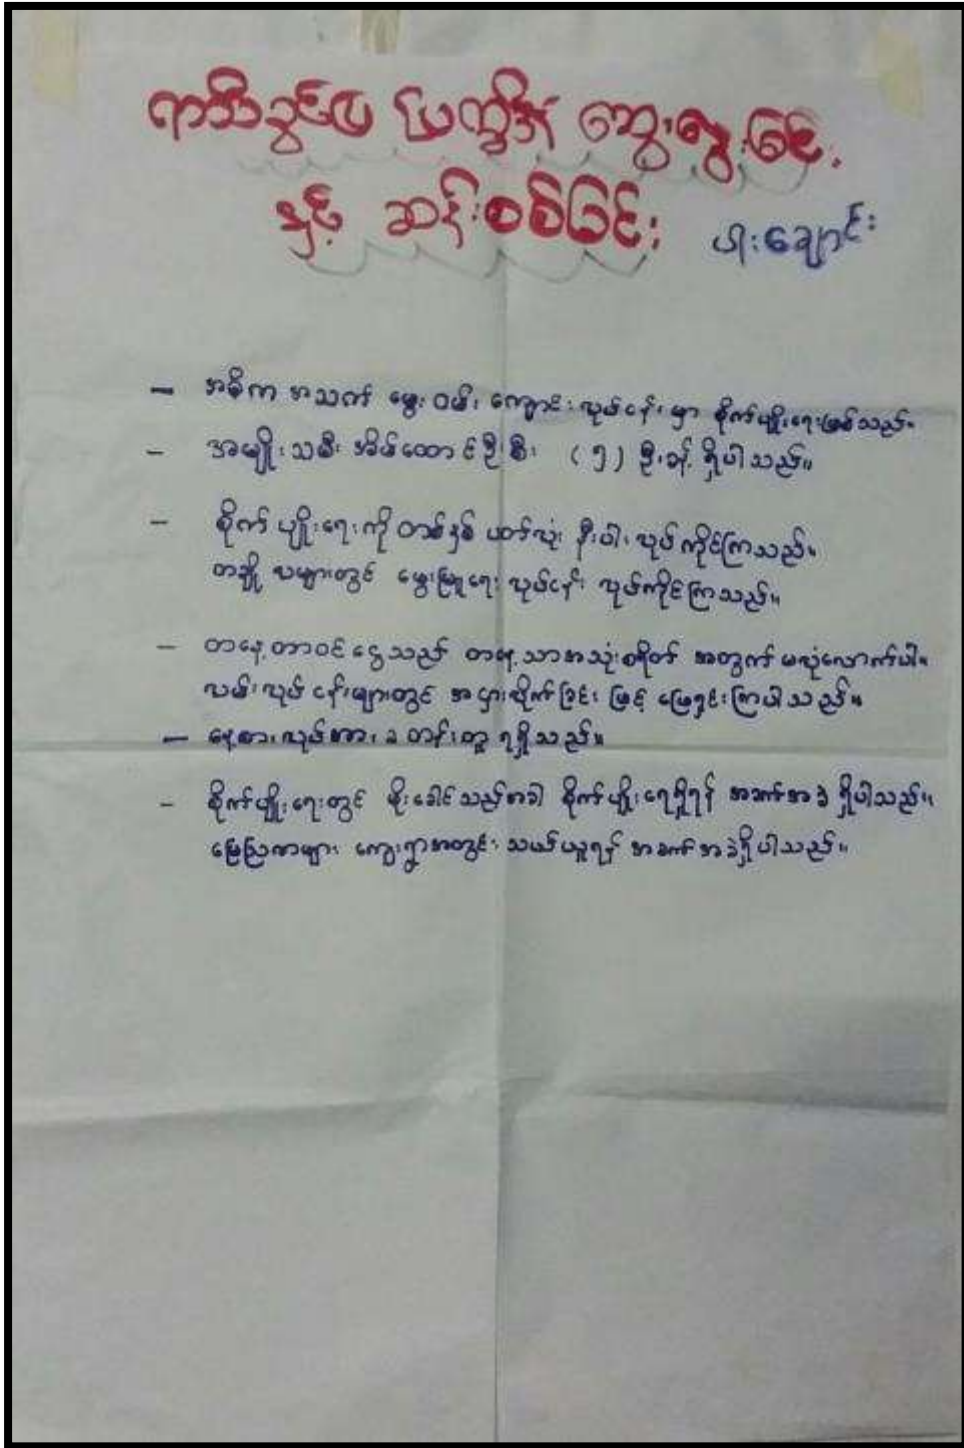 ရာသီခွင်ပြ ပြက္ခဒိန် ဆွေးနွေးခြင်း
နှင့် ဆန်းစစ်ခြင်း ပါးချောင်း
– အဓိက အသက် မွေး ဝမ်း ကျောင်း လုပ်ငန်း မှာ စိုက်ပျိုးရေးဖြစ်သည်။
– အမျိုး သမီး အိမ်ထောင်ဦးစီး (၅) ဦးခန့် ရှိပါသည်။
– စိုက် ပျိုးရေးကို တစ်နှစ် ပတ်လုံး နီးပါး လုပ် ကိုင်ကြသည်။
တချို့ လများတွင် မွေးမြူရေး လုပ်ငန်း လုပ်ကိုင်ကြသည်။
– တနေ့တာဝင်ငွေသည် တနေ့သာအသုံးစရိတ် အတွက် မလုံလောက်ပါ။
လမ်းလုပ် ငန်းများတွင် အငှားလိုက်ခြင်း ဖြင့် ဖြေရှင်းကြပါသည်။
– နေ့စားလုပ်အားခ တန်းတူ ရရှိသည်။
– စိုက်ပျိုးရေးတွင် မိုးခေါင်သည့်အခါ စိုက်ပျိုးရေရရှိရန် အခက်အခဲ ရှိပါသည်။
မြေသြဇာများ ကျေးရွာအတွင်း သယ်ယူရန် အခက်အခဲရှိပါသည်။